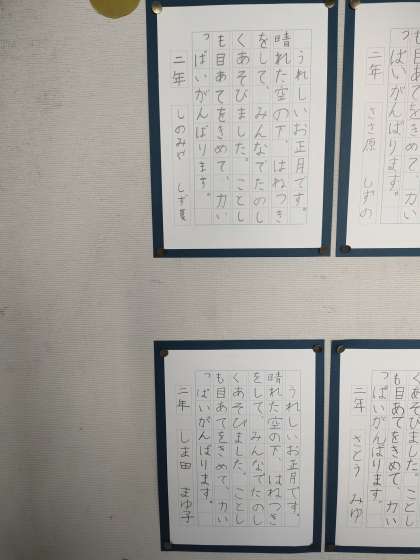 うれしいお正月です。
晴れた空の下、はねつき
をして、みんなでたのし
くあそびました。ことし
も目あてをきめて、力い
っぱいがんばります。
二年 しのみや しず
も目あてをきめて、力い
っぱいがんばります。
二年 ささ原 しずの
うれしいお正月です。
晴れた空の下、はねつき
をして、みんなでたのし
くあそびました。ことし
も目あてをきめて、力い
っぱいがんばります。
二年 しま田 まゆ子
くあそびました。ことし
も目あてをきめて、力い
っぱいがんばります。
二年 さとう みゆ